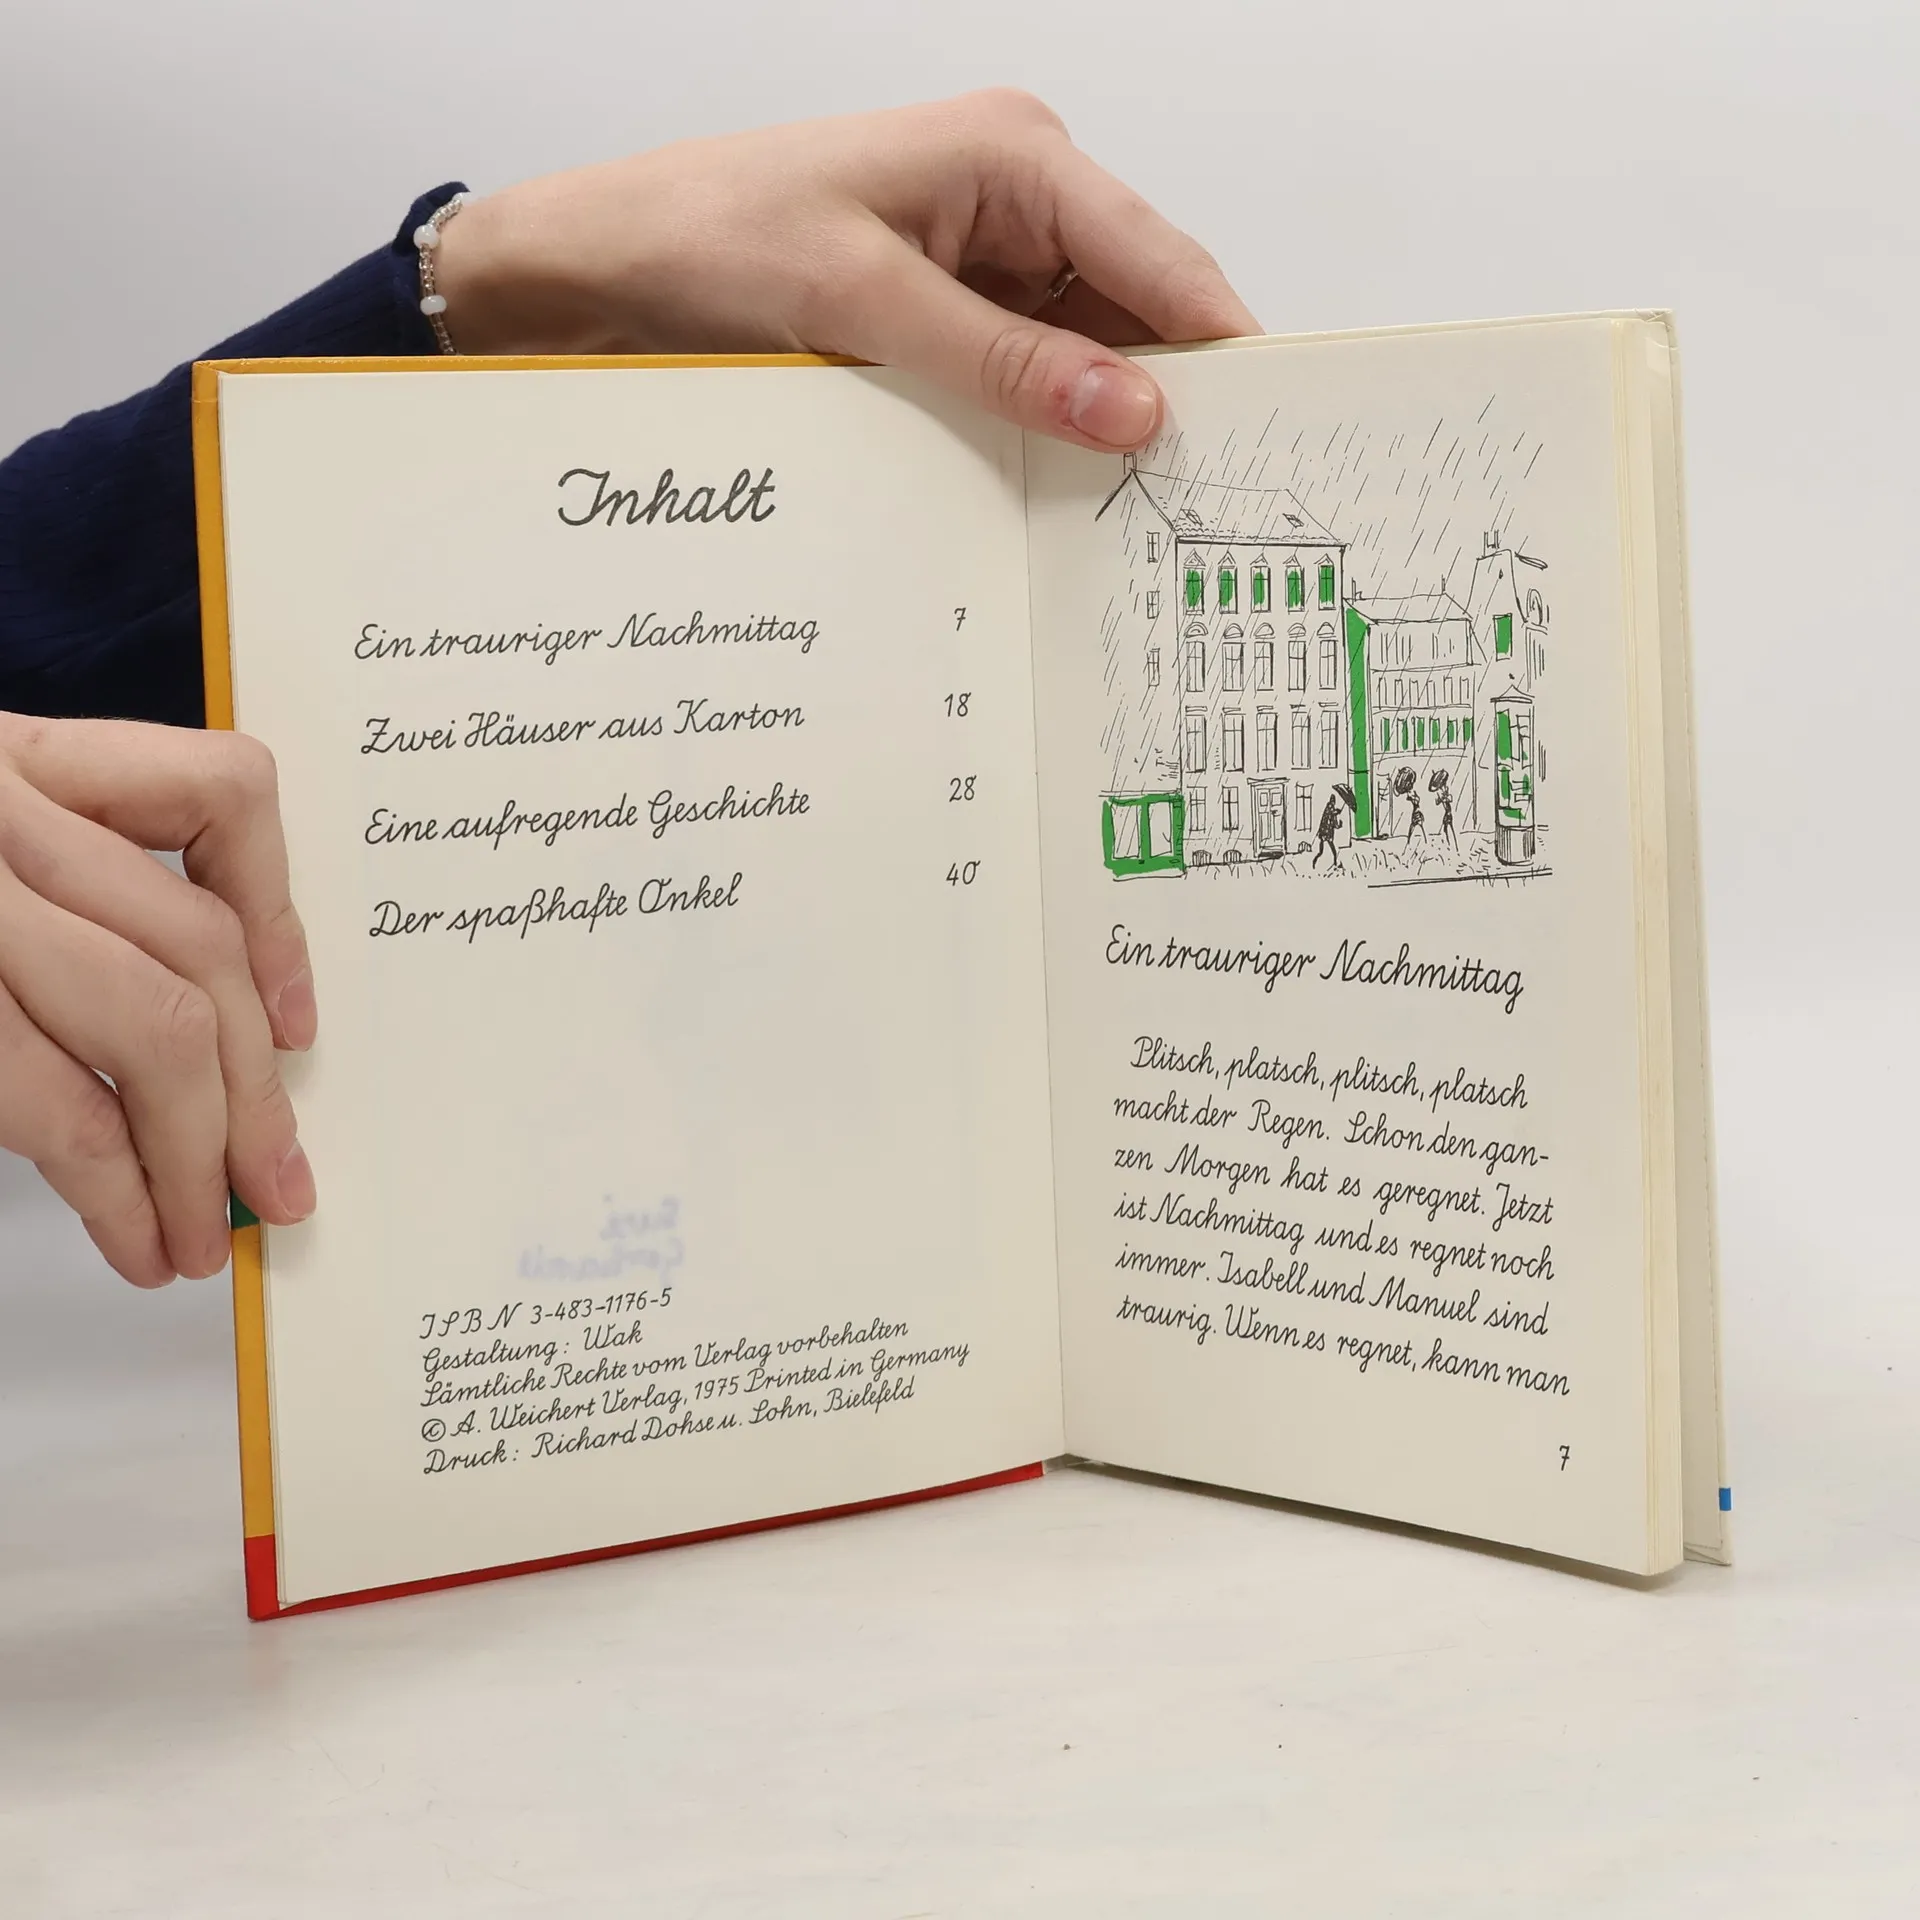 Inhalt
Ein trauriger Nachmittag 7
Zwei Häuser aus Karton 18
Eine aufregende Geschichte 28
Der spaßhafte Onkel 40
ISBN 3-483-1176-5
Gestaltung: Wak
Sämtliche Rechte vom Verlag vorbehalten
© A. Weichert Verlag, 1975 Printed in Germany
Druck: Richard Dohse u. Sohn, Bielefeld
Ein trauriger Nachmittag
Plitsch, platsch, plitsch, platsch
macht der Regen. Schon den gan-
zen Morgen hat es geregnet. Jetzt
ist Nachmittag und es regnet noch
immer. Isabell und Manuel sind
traurig. Wenn es regnet, kann man
7